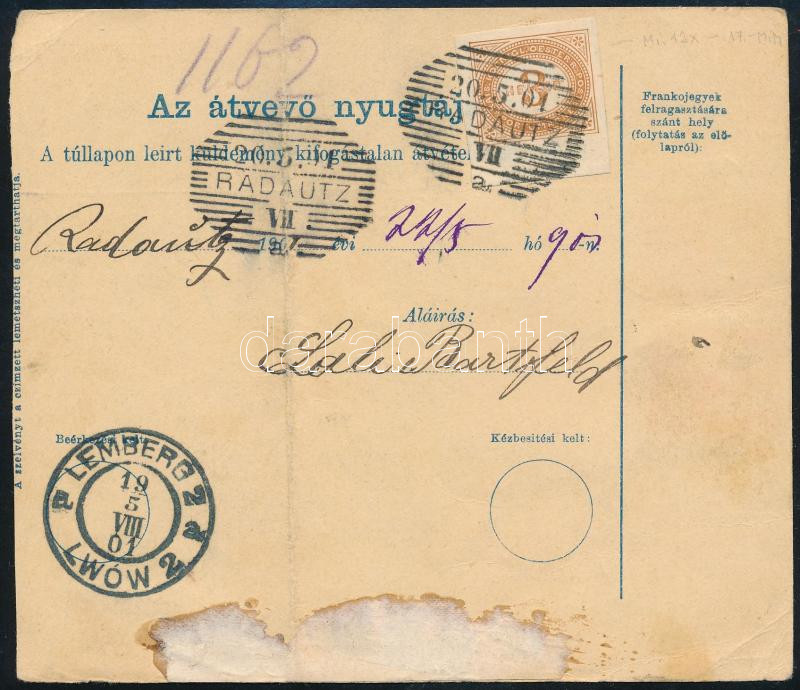 1162
Mi. 12x
Az átvevő nyugtája
Frankojegyek
felragasztására
szánt hely
(folytatás az elő-
lapról):
A túllapon leirt küldemény kifogástalan átvétele
20.5.01
RADAUTZ
VII
a
20.5.01
RADAUTZ
VII
a
Radautz 190 évi 22/5 hó -n.
Aláirás:
darabanth
Bartfeld
Beérkezési kelt:
Kézbesitési kelt:
LEMBERG 2
19
5
VIII
01
LWÓW 2
A szelvényt a czimzett lemetszheti és megtarthatja.